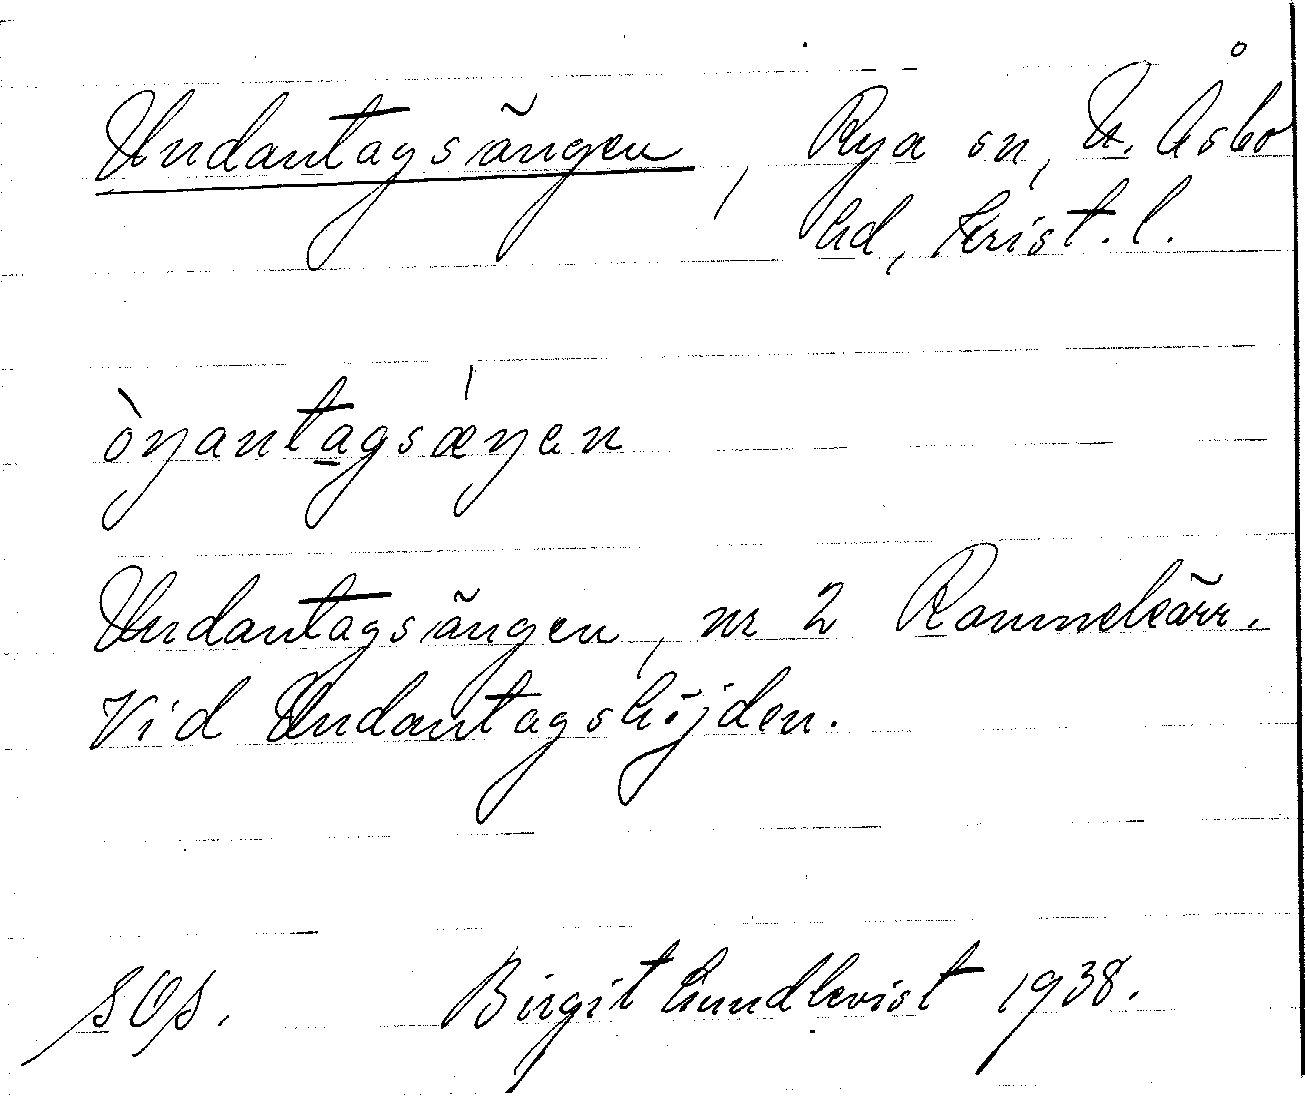 Undantagsängen, Rya sn, N. Åsbo
hd, Krist. l.
òŋantagsǽŋen
Undantagsängen, nr 2 Rammekärr.
Vid Undantagshöjden.
SOS. Birgit Lundkvist 1938.